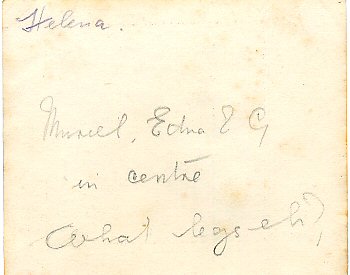 Helena.
Muriel, Edna & G
in centre
What legs eh?